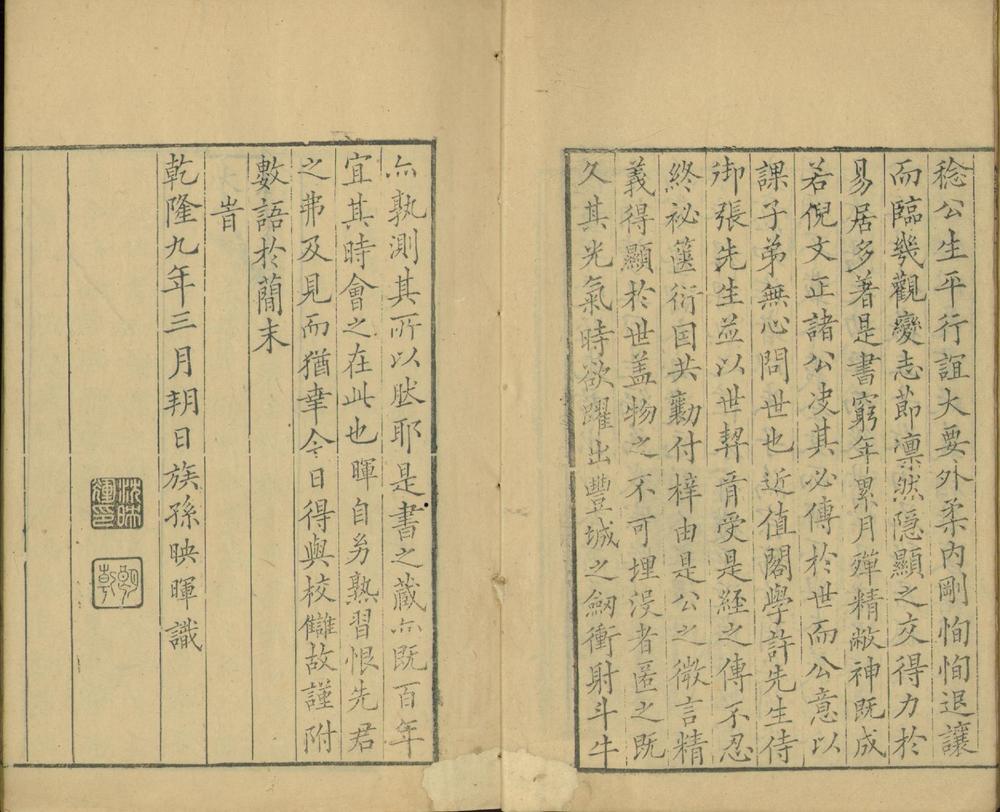 稔公生平行誼大要外柔內剛恂恂退讓
而臨幾觀變志節凛然隱顯之交得力於
易居多著是書窮年累月殫精敝神既成
若倪文正諸公决其必傳於世而公意以
課子弟無心問世也近值閣學許先生侍
御張先生並以世契胥受是經之傳不忍
終祕篋衍囯共勷付梓由是公之微言精
義得顯於世盖物之不可埋没者匿之既
久其光氣時欲躍出豐城之劒衝射斗牛
亦孰測其所以肰耶是書之藏亦既百年
宜其時會之在此也暉自㓜熟習恨先君
之弗及見而猶幸今日得與校讎故謹附
數語於蕳末
旹
乾隆九年三月朔日族孫映暉識
沈映
暉印
朗乾